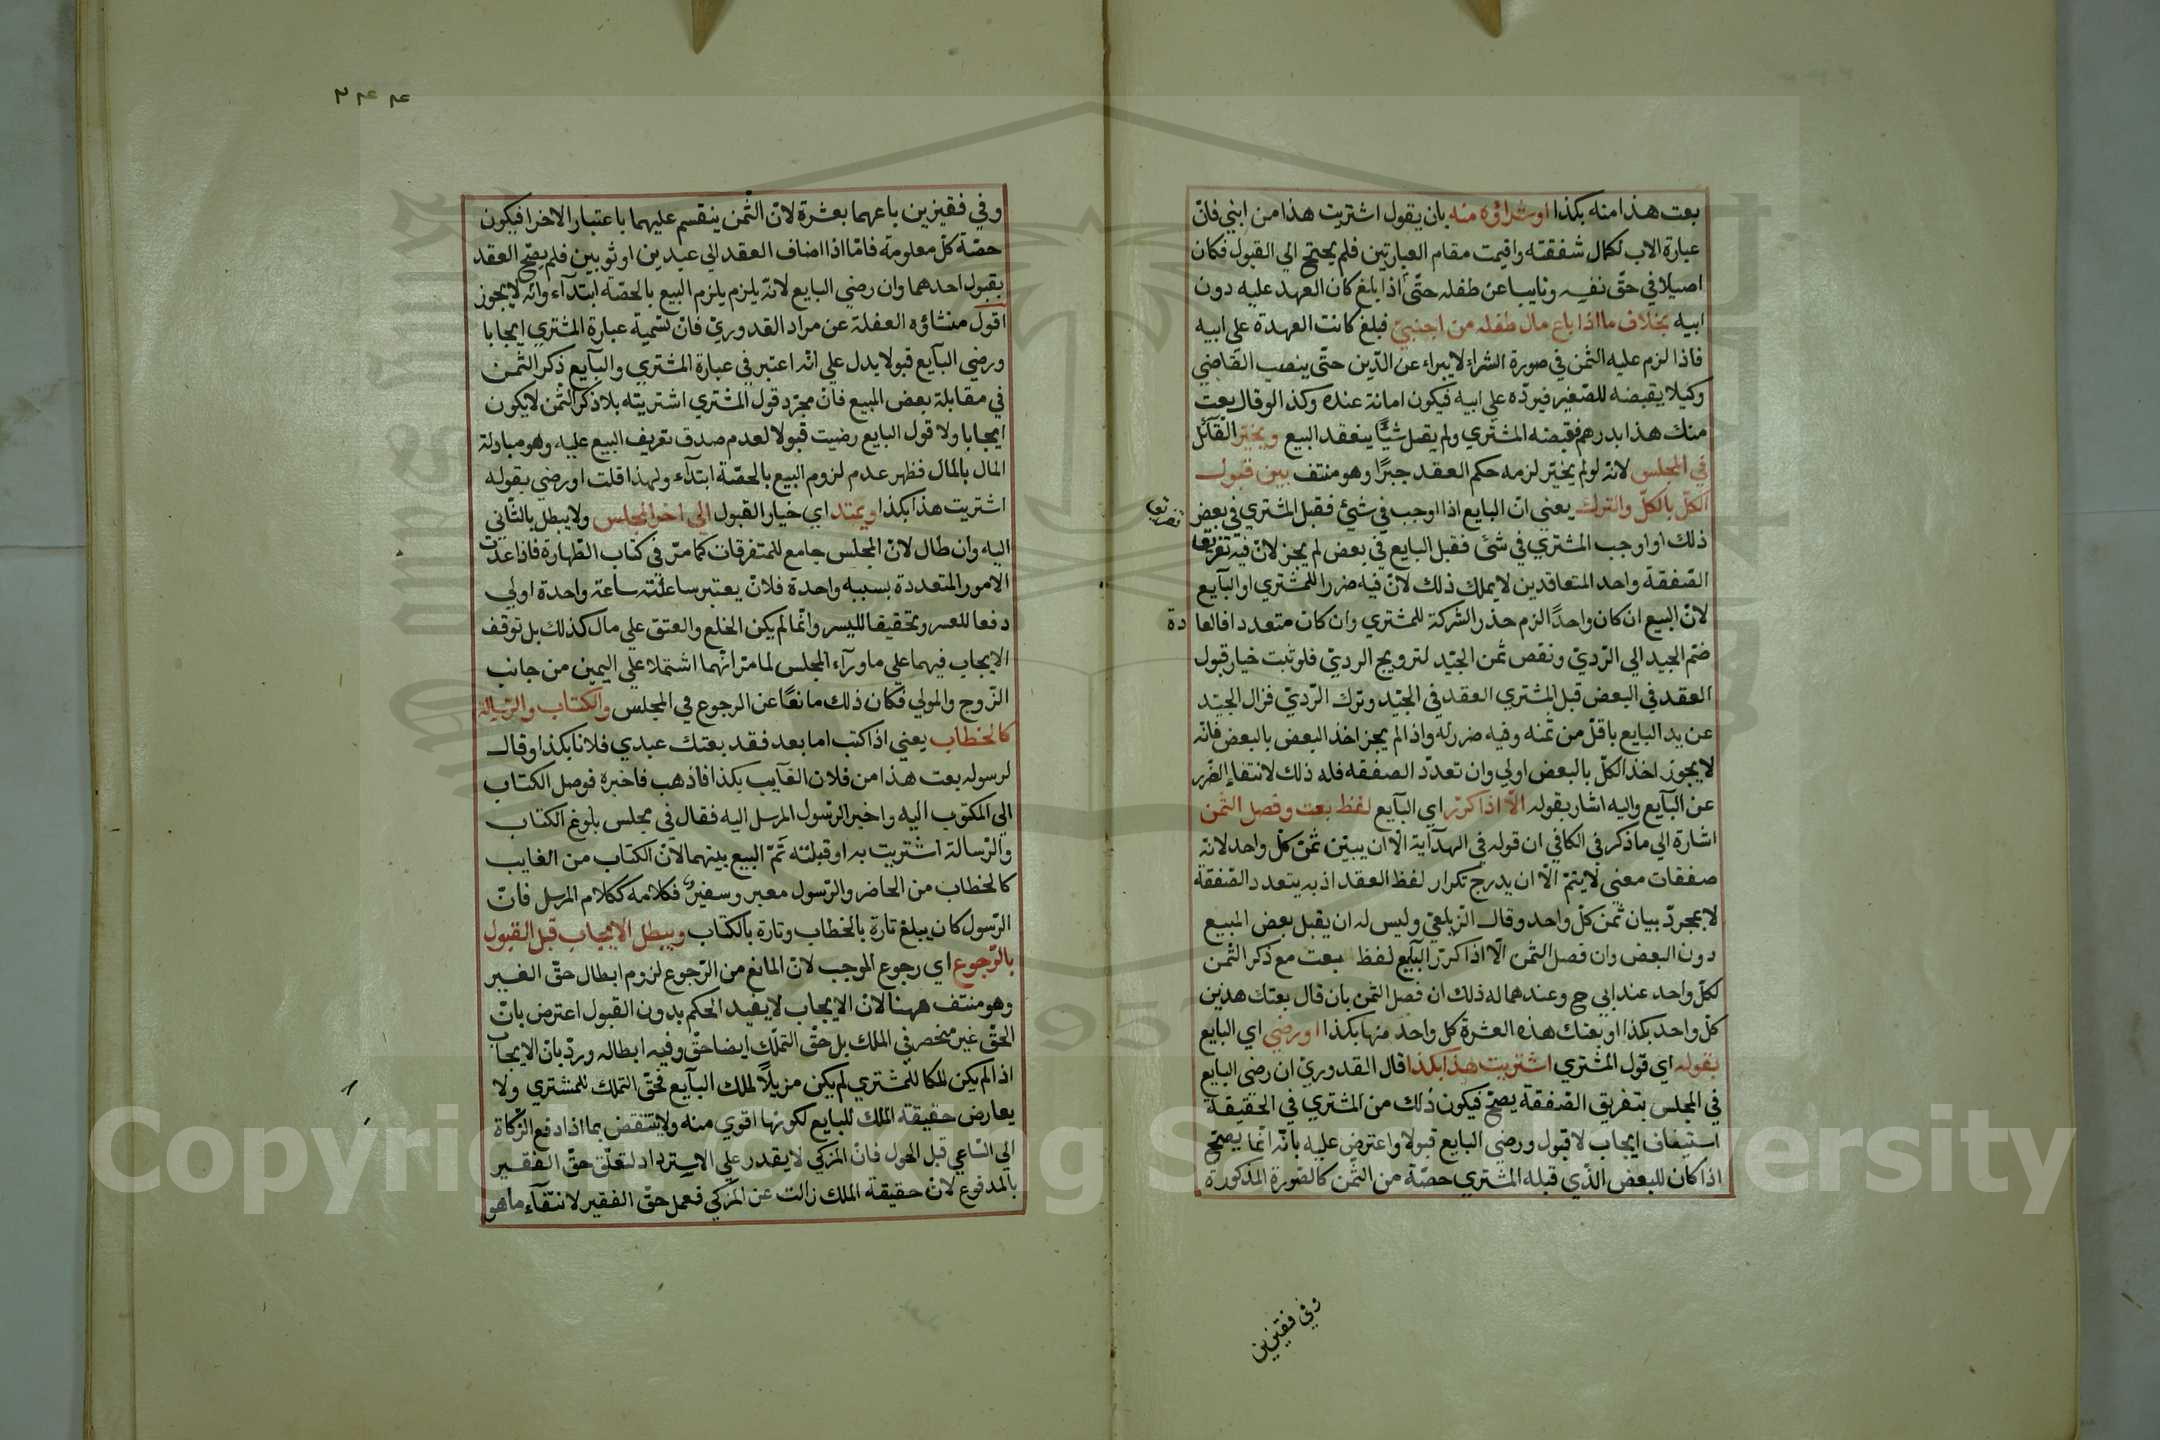 بعت هذا منه بكذا او شراؤه منه بان يقول اشتريت هذا من ابني فانّ
عبارة الاب لكمال شفقته واقيمت مقام العبارتين فلم يحتج الي القبول فكان
اصيلا في حقّ نفسه ونايبا عن طفله حتّي اذا بلغ كان العهد عليه دون
ابيه بخلاف ما اذا باع مال طفله من اجنبيّ فبلغ كانت العهدة علي ابيه
فاذا لزم عليه الثمن في صورة الشراء لا يبراء عن الدّين حتّي ينصب القاضي
وكيلا يقبضه للصّغير فيردّه علي ابيه فيكون امانة عنده وكذا لو قال بعت
منك هذا بدرهم فقبضه المشتري ولم يقبل شيًّا ينعقد البيع ويخيّر القآئل
في المجلس لانّه لو لم يخيّر لزمه حكم العقد جبرًا وهو منتف بين قبول
الكلّ بالكلّ والترك يعني انّ البايع اذا اوجب في شيئ فقبل المشتري في بعض
ذلك او اوجب المشتري في شئ فقبل البايع في بعض لم يجز لانّ فيه تفريق
الصّفقة واحد المتعاقدين لا يملك ذلك لانّ فيه ضررا للمشتري او البآيع
لانّ البيع ان كان واحدًا لزم حذر الشركة للمشتري وان كان متعددا فالعا
دة
ضمّ الجيد الي الرّديّ ونقص ثمن الجيّد لترويج الرديّ فلو ثبت خيار قبول
العقد في البعض قبل المشتري العقد في الجيّد وترك الرّديّ فزال الجيّد
عن يد البايع باقلّ من ثمنه وفيه ضررله واذا لم يجز اخذ البعض بالبعض فانّه
لا يجوز اخذ الكلّ بالبعض اولي وان تعدّد الصفقه فله ذلك لانتفاء الضّرر
عن البآيع واليه اشار بقوله الّا اذا كرّر اي البآيع لفظ بعت وفصل الثمن
اشارة الي ما ذكر في الكافي ان قوله في الهدآية الّا ان يبيّن ثمن كلّ واحد لانّه
صفقات معني لا يتمّ الّا ان يدرج تكرار لفظ العقد اذ به يتعدد الصّفقة
لا بمجردّ بيان ثمن كلّ واحد وقال الزّيلعيّ وليس له ان يقبل بعض المبيع
دون البعض وان فصل الثمن الّا اذا كرّر البآيع لفظ بعت مع ذكر الثمن
لكلّ واحد عند ابي ح وعندهما له ذلك ان فصل الثمن بان قال بعتك هذين
كلّ واحد بكذا او بعتك هذه العشرة كل واحد منها بكذا او رضي اي البايع
بقوله اي قول المشتري اشتريت هذا بكذا قال القدوريّ ان رضي البايع
في المجلس بتفريق الصّفقة يصحّ فيكون ذلك من المشتري في الحقيقة
استيناف ايجاب لا قبول ورضي البايع قبولا واعترض عليه بانّه انّما يصحّ
اذا كان للبعض الّذي قبله المشتري حصّة من الثّمن كالصّورة المذكورة
وفي قفيزين
وفي فقيزين باعهما بعشرة لانّ الثّمن ينقسم عليهما باعتبار الاخرا فيكون
حصّة كلّ معلومة فامّا اذا اضاف العقد الي عبدين او ثوبين فلم يصحّ العقد
بقبول احدهما وان رضي البايع لانّه يلزم يلزم البيع بالحصّة ابتدآء وانّه لا يجوز
اقول منشاؤه الغفلة عن مراد القدوريّ فانّ تسمية عبارة المشتري ايجابا
ورضي البآيع قبولا يدل علي انّه اعتبر في عبارة المشتري والبآيع ذكر الثمن
في مقابلة بعض المبيع فانّ مجرّد قول المشتري اشتريته بلا ذكر الثّمن لا يكون
ايجابا ولا قول البايع رضيت قبولا لعدم صدق تعريف البيع عليه وهو مبادلة
المال بالمال فظهر عدم لزوم البيع بالحصّة ابتدآء ولهذا قلت او رضي بقوله
اشتريت هذا بكذا ويمتد اي خيار القبول الي اخر المجلس ولا يبطل بالثّاني
اليه وان طال لانّ المجلس جامع للمتفرقات كما مرّ في كتاب الطّهارة فاذا عدّت
الامور المتعددة بسببه واحدة فلانّ يعتبر ساعاته ساعة واحدة اولي
دفعا للعسر وتحقيقا لليسر وانّما لم يكن الخلع والعتق علي مال كذلك بل توقف
الايجاب فيهما علي ما ورآء المجلس لما مرّ انّهما اشتملا علي اليمين من جانب
الزّوج والمولي فكان ذلك مانعًا عن الرجوع في المجلس والكتاب والرّسالة
كالخطاب يعني اذا كتب اما بعد فقد بعتك عبدي فلانا بكذا وقال
لرسوله بعت هذا من فلان الغآيب بكذا فاذهب فاخبره فوصل الكتاب
الي المكتوب اليه واخبر الرّسول المرسل اليه فقال في مجلس بلوغ الكتاب
والرّسالة اشتريت به او قبلته تمّ البيع بينهما لانّ الكتاب من الغايب
كالخطاب من الحاضر والرّسول معبر وسفير فكلامه ككلام المرسل فانّ
الرّسول كان يبلغ تارة بالخطاب وتارة بالكتاب ويبطل الايجاب قبل القبول
بالرّجوع اي رجوع الموجب لانّ المانع من الرّجوع لزوم ابطال حقّ الغير
وهو منتف ههنا لانّ الايجاب لا يفيد الحكم بدون القبول اعترض بانّ
الحقّ غير منحصر في الملك بل حقّ التملّك ايضا حقّ وفيه ابطاله وردّ بانّ الايجاب
اذا لم يكن للمكا للمشتري لم يكن مزيلًا لملك البآيع فحقّ التملك للمشتري ولا
يعارض حقيقة الملك للبايع لكونها اقوي منه ولا ينتقض بما اذا دفع الزّكاة
الي السّاعي قبل الحول فانّ المزكي لا يقدر علي الاسترداد لتعلّق حقّ الفقير
بالمدفوع لانّ حقيقة الملك زالت عن المزكي فعمل حقّ الفقير لانتفآء ما هو
Copyright © King Saud University